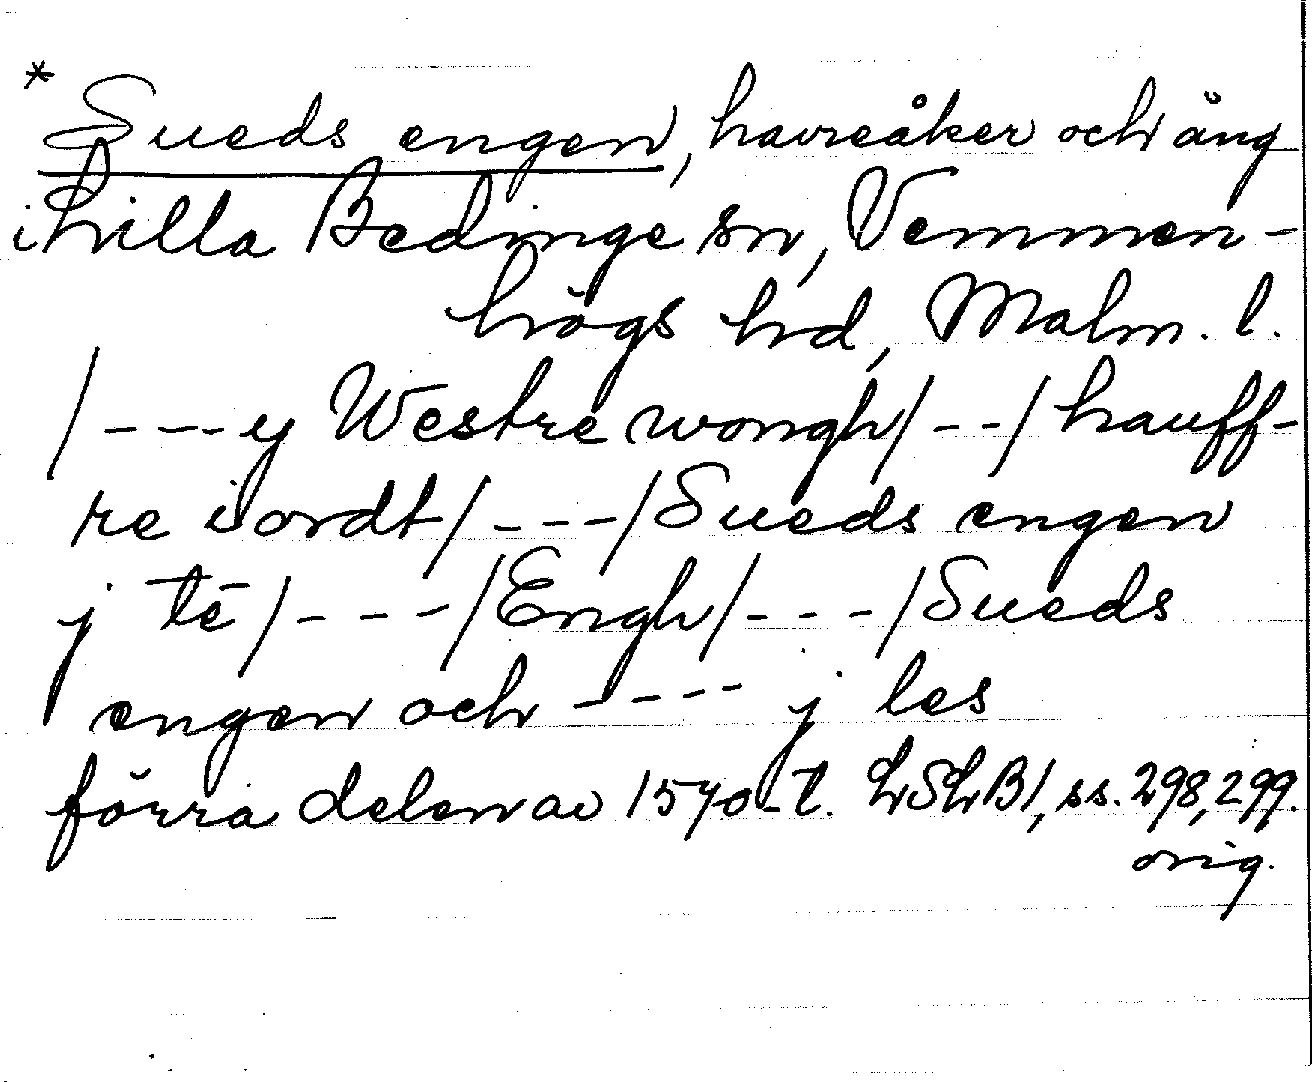 * Sueds engen, havreåker och äng
i Lilla Bedinge sn, Vemmen-
högs hd, Malm. l.
/---y Westre wongh/--/hauff-
re iordt/---/Sueds engen
j tē/---/Engh/---/Sueds
engen och ---- j les
förra delen av 1570-t. LSLB1, ss. 298, 299.
orig.